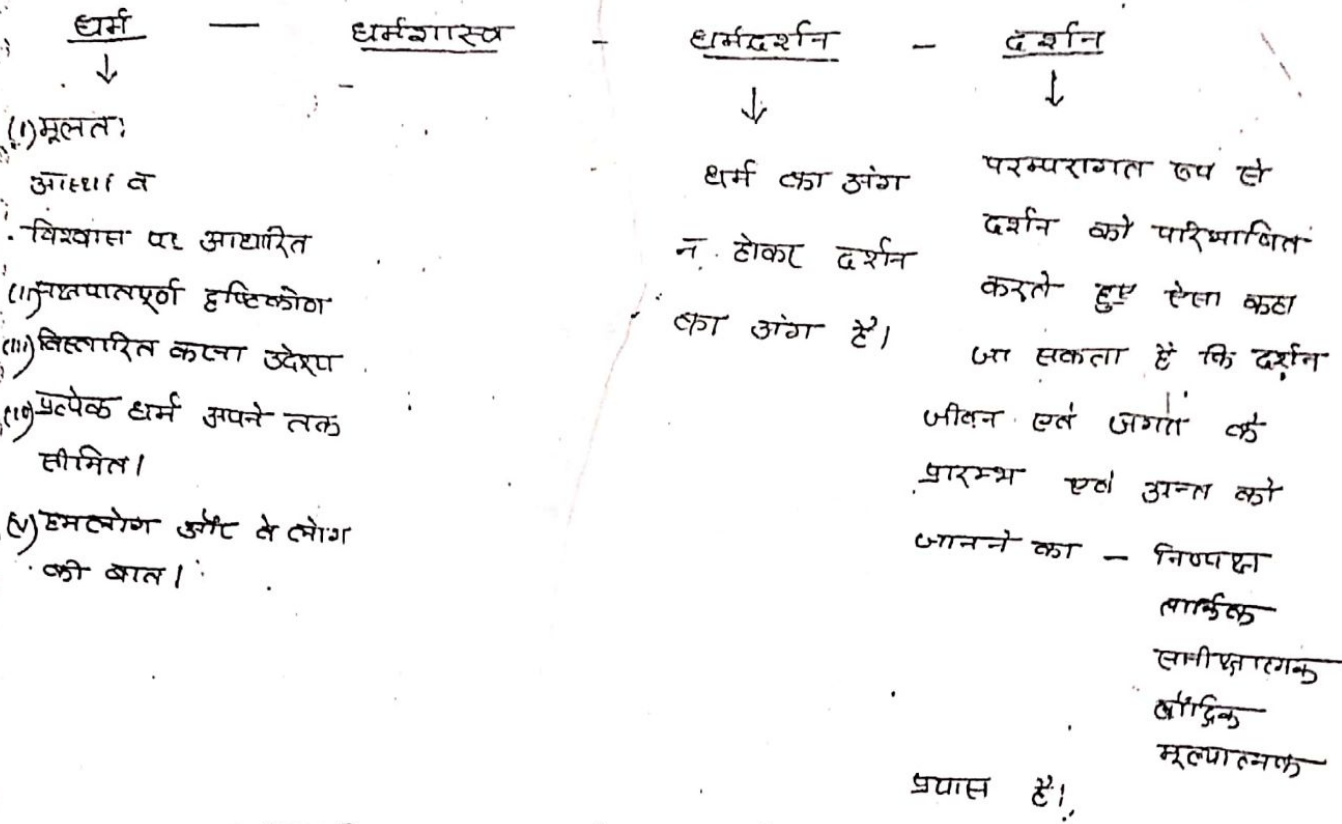 धर्म — धर्मशास्त्र - धर्मदर्शन - दर्शन
↓ ↓ ↓
(i) मूलतः
आस्था व
विश्वास पर आधारित
(ii) पक्षपातपूर्ण दृष्टिकोण
(iii) विस्तारित करना उदेश्य
(iv) प्रत्येक धर्म अपने तक
सीमित।
(v) हमलोग और वे लोग
की बात।
धर्म का अंग
न होकर दर्शन
का अंग है।
परम्परागत रूप से
दर्शन को परिभाषित
करते हुए ऐसा कहा
जा सकता है कि दर्शन
जीवन एवं जगत के
प्रारम्भ एवं अन्त को
जानने का — निष्पक्ष
तार्किक
समीक्षात्मक
बौद्धिक
मूल्यात्मक
प्रयास है।